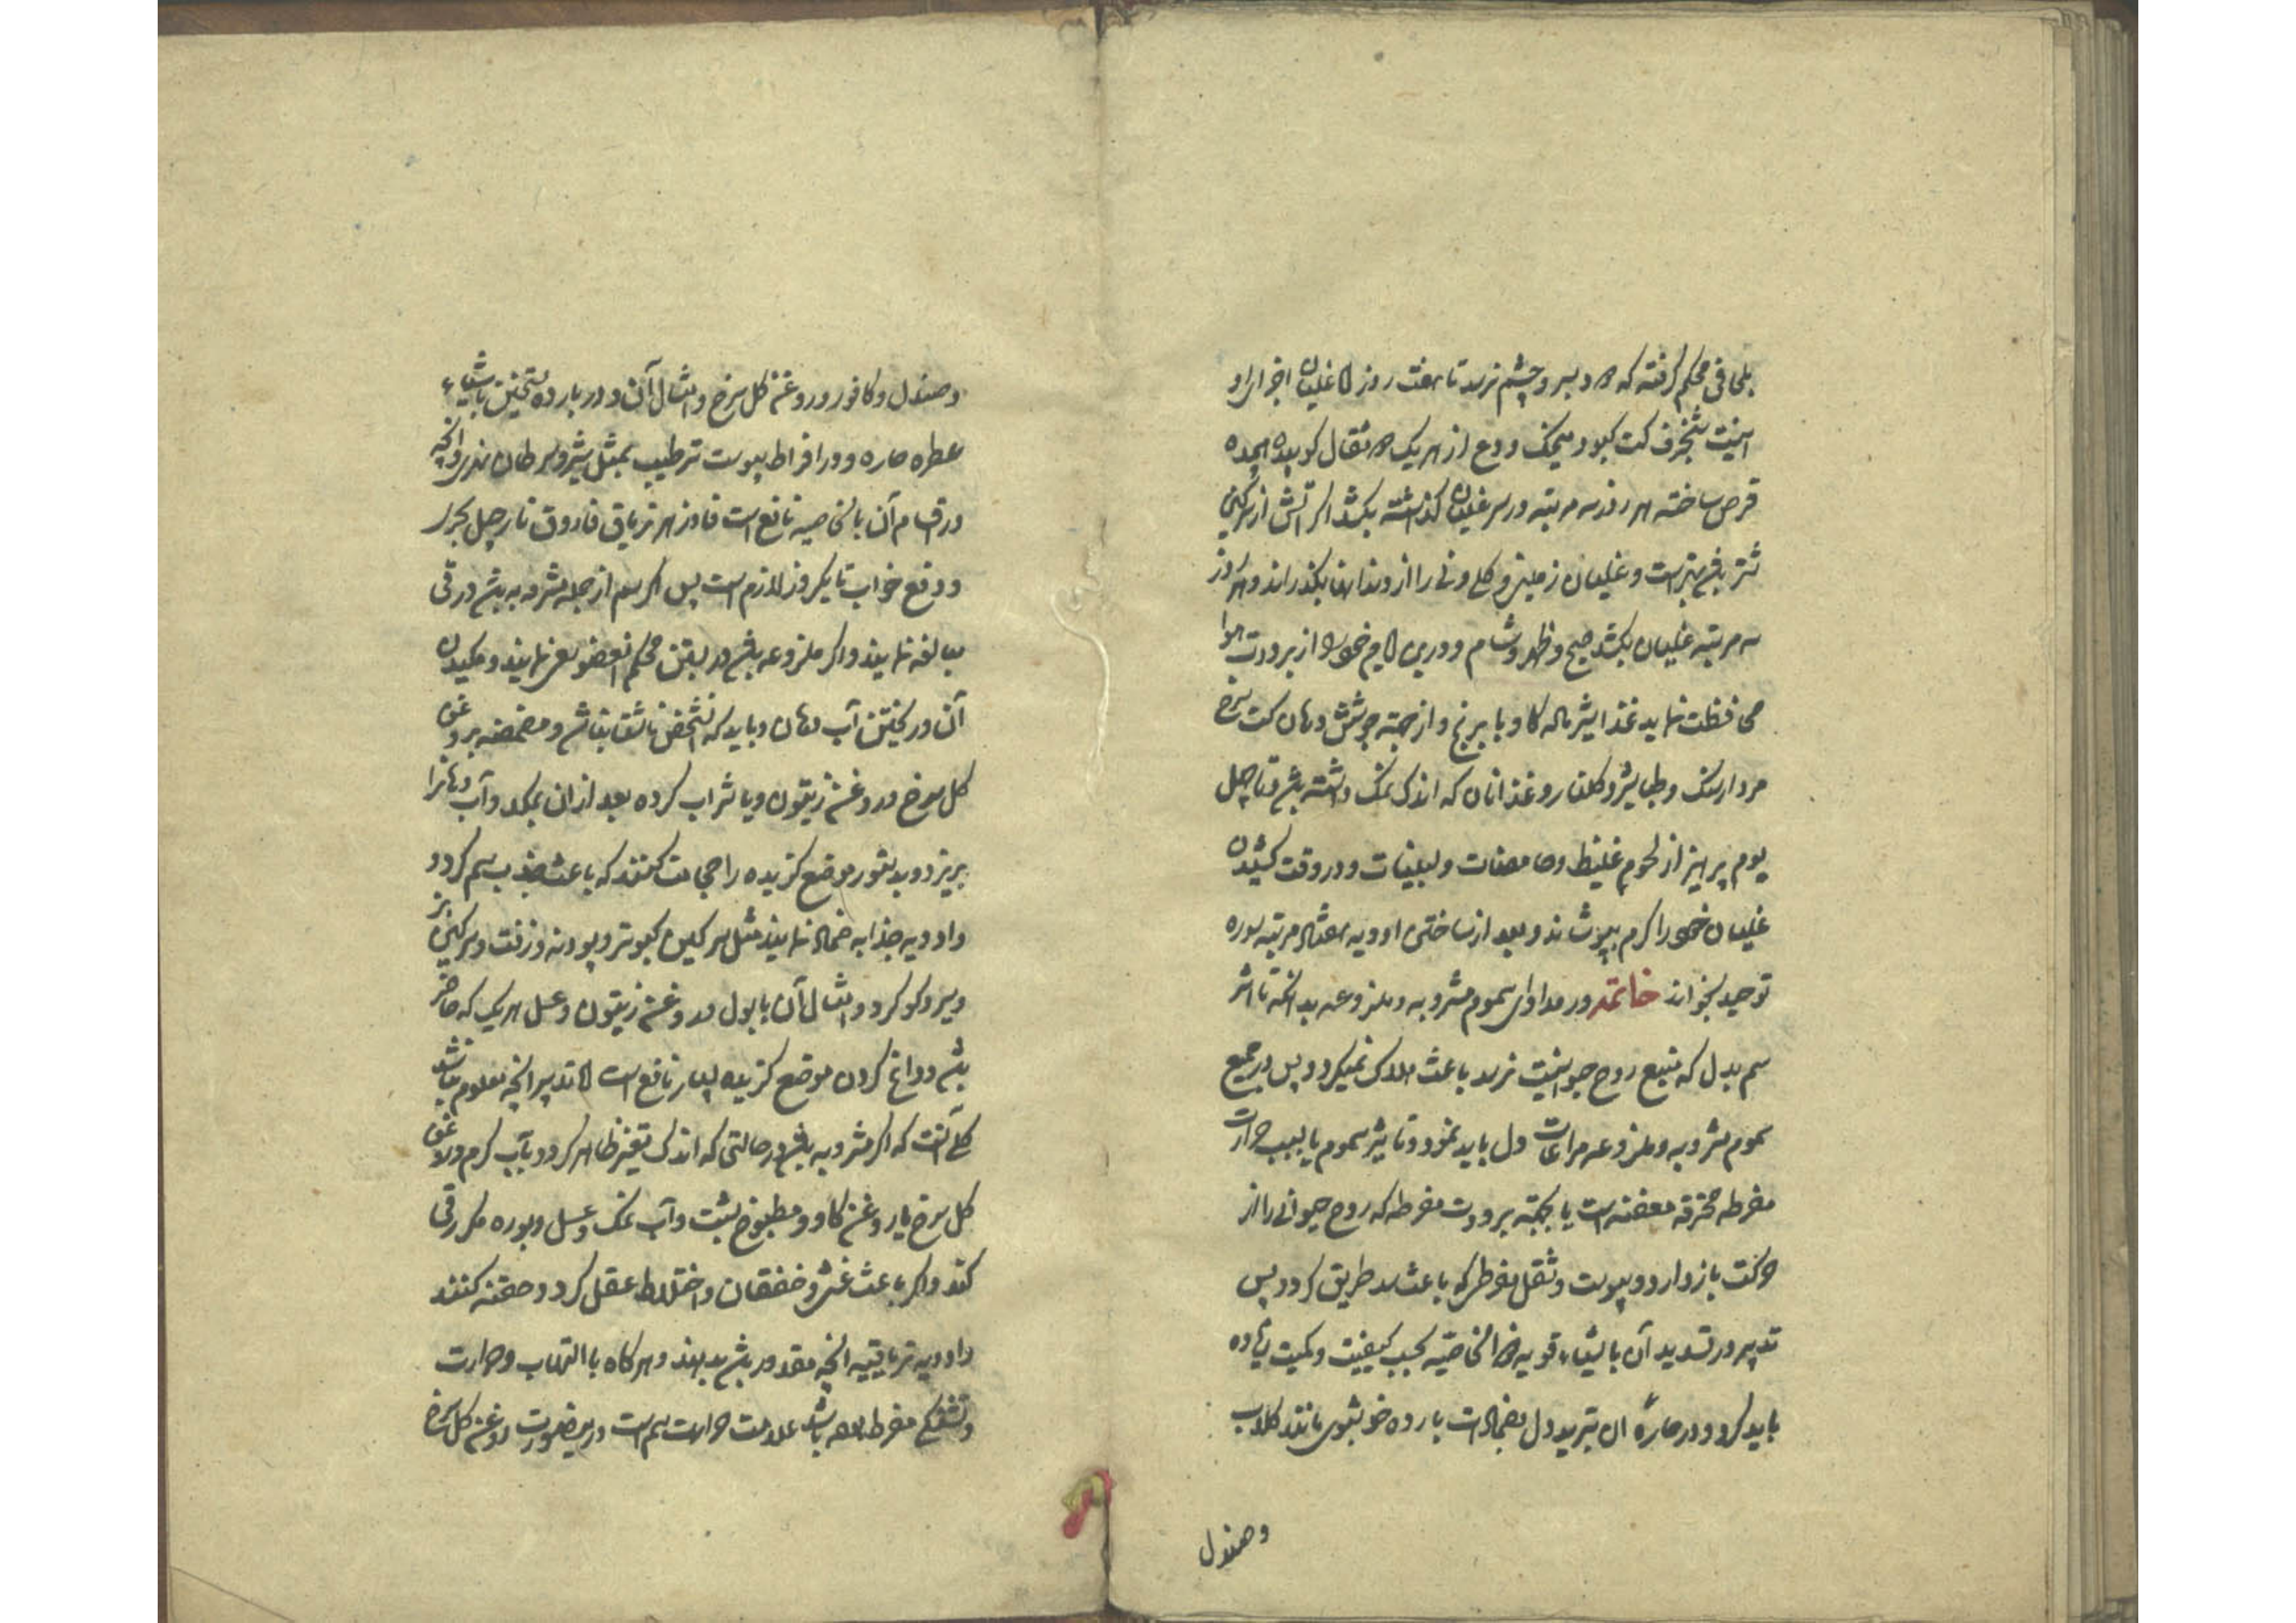 بلحافی محکم گرفته که دود بسر و چشم نرسد تا هفت روز اما غلیان اجزای او
اینست شنجرف کت کبود از هر یک مثقال کوبیده
قرص ساخته هر روز سه مرتبه در سر غلیان گذاشته بکشد اگر آتش از سرکین
شتر باشد بهتر است و غلیان زمینی و کلی و نی را از دندانها بگذراند و هر روز
سه مرتبه غلیان بکشد صبح و ظهر و شام و درین ایام خود را از برودت هوا
محافظت نماید غذا شیر ماله کاو با برنج و از جهته جوشش دهان کت سرخ
مردارسنک و طباشیر و کلنار و غذا نان که اندک نمک داشته باشد تا چهل
یوم پرهیز از لحوم غلیظ و حامضات و لبنیات و در وقت کشیدن
غلیان خود را کرم بپوشاند و بعد از ساختن ادویه هفتاد مرتبه سوره
توحید بخواند خاتمه در مداوای سموم مشروبه و ملذوعه بدانکه تا اثر
سم بدل که منبع روح حیوانیست نرسد باعث هلاک نمیکردد پس در جمیع
سموم مشروبه و ملذوعه مراعات دل باید نمود و تاثیر سموم یا بسبب حرارت
مفرطه محرقه معفنه است یا بجهته برودت مفرطه که روح حیوانی را از
حرکت باز دارد و یبوست و ثقل مفرط که باعث سد طریق کردد پس
تدبیر در تسدید آن باشیاء قویه ذو الخاصیّه بحسب کیفیت و کمیت زیاده
باید کرد و در حارهٔ آن تبرید دل بضمادات بارده خوشبوی مانند کلاب
و صندل
و صندل و کافور و روغن کل سرخ و امثال آن و در بارده تسخین باشیاء
عطره حاره و در افراط یبوست ترطیب بمثل شیر و سرطان نهری و آنچه
در اقسام آن بالخاصیه نافع است فادزهر تریاق فاروق نارجیل بحری
و دفع خواب تا یکروز لازم است پس اگر سم از جمله مشروبه باشد در قی
مبالغه نمایند و اگر ملذوعه باشد در بستن محکم آنعضو سعی نمایند و مکیدن
آن و ریختن آب دهان و باید که آنشخص ناشتا نباشد و مضمضه بروغن
کل سرخ و روغن زیتون و یا شراب کرده بعد از آن بمکد و آب دهانرا
بریزد و بدستور موضع کزیده را حجامت کنند که باعث جذب سم کردد
و ادویه جذابه ضماد نمایند مثل سرکین کبوتر و پودنه و زفت و سرکین بز
و سیر و کوکرد و امثال آن با بول و روغن زیتون و عسل هر یک که حاضر
باشد و داغ کردن موضع کزیده بسیار نافع است اما تدبیر آنچه معلوم نباشد
کلی آنست که اگر مشروبه باشد در حالتی که اندک تغیر ظاهر کردد بآب کرم و روغن
کل سرخ یا روغن کاو و مطبوخ شبت و آب نمک و عسل و بوره مکرر قی
کند و اگر باعث غشی و خفقان و اختلاط عقل کردد حقنه کنند
و ادویه تریاقیه آنچه مقدور باشد بدهند و هرگاه با التهاب و حرارت
و تشنگی مفرط بوده باشد علامت حرارت سم است در ینصورت روغن کل سرخ